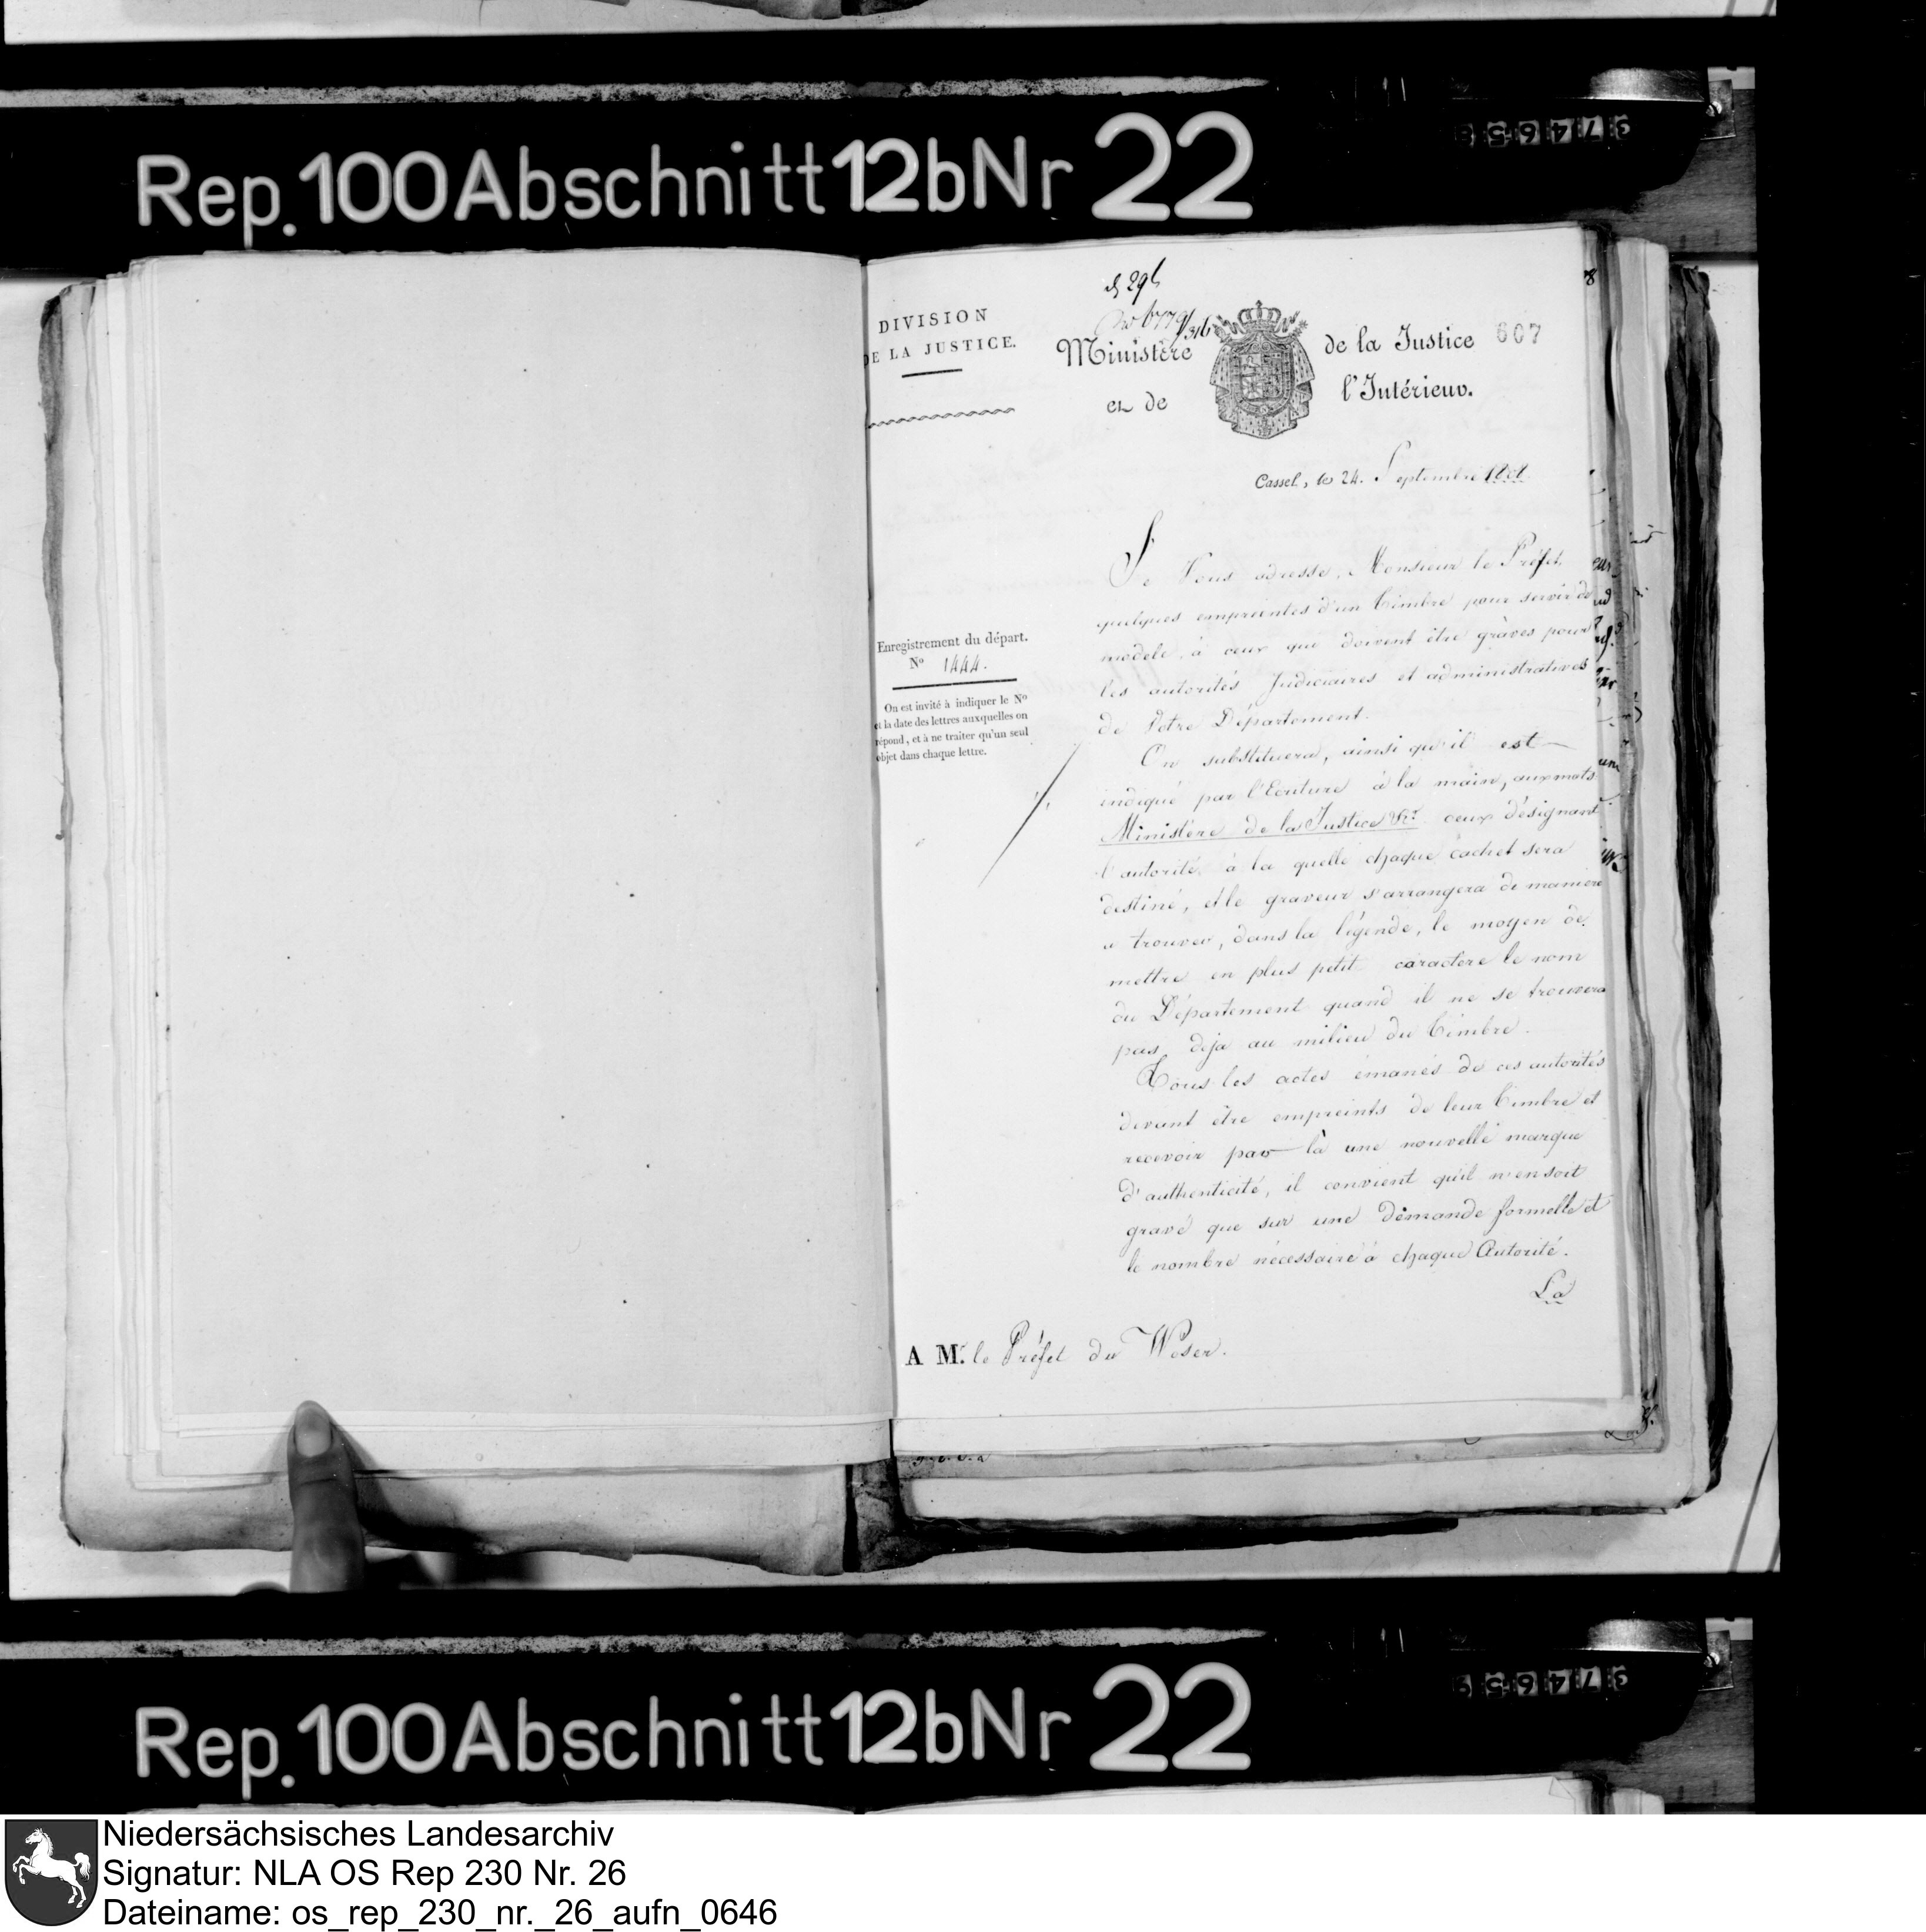 Rep. 100 Abschnitt 12b Nr 22
374658
29
No 6779/316
DIVISION
DE LA JUSTICE.
Ministère de la Justice 607
et de l'Intérieur.
Cassel, le 24. Septembre 1808
Je Vous adresse, Monsieur le Préfet,
quelques empreintes d'un timbre pour servir de
modèle, à ceux que doivent être gravés pour
les autorités Judiciaires et administratives
de Votre Département.
On substituera, ainsi qu'il est
indiqué par l'Ecriture à la main, aux mots
Ministère de la Justice &r. ceux désignant
l'autorité à la quelle chaque cachet sera
destiné, et le graveur s'arrangera de maniere
a trouver, dans la légende, le moyen de
mettre en plus petit caractere le nom
du Département quand il ne se trouvera
pas deja au milieu du timbre.
Tous les actes émanés de ces autorités
devant être empreints de leur timbre et
recevoir par là une nouvelle marque
d'authenticité, il convient qu'il n'en soit
gravé que sur une demande formelle et
le nombre nécessaire à chaque Autorité.
La
Enregistrement du départ.
No 1444.
On est invité à indiquer le No
et la date des lettres auxquelles on
répond, et à ne traiter qu'un seul
objet dans chaque lettre.
A Mr. le Préfet du Weser.
Rep. 100 Abschnitt 12b Nr 22
374659
Niedersächsisches Landesarchiv
Signatur: NLA OS Rep 230 Nr. 26
Dateiname: os_rep_230_nr._26_aufn_0646